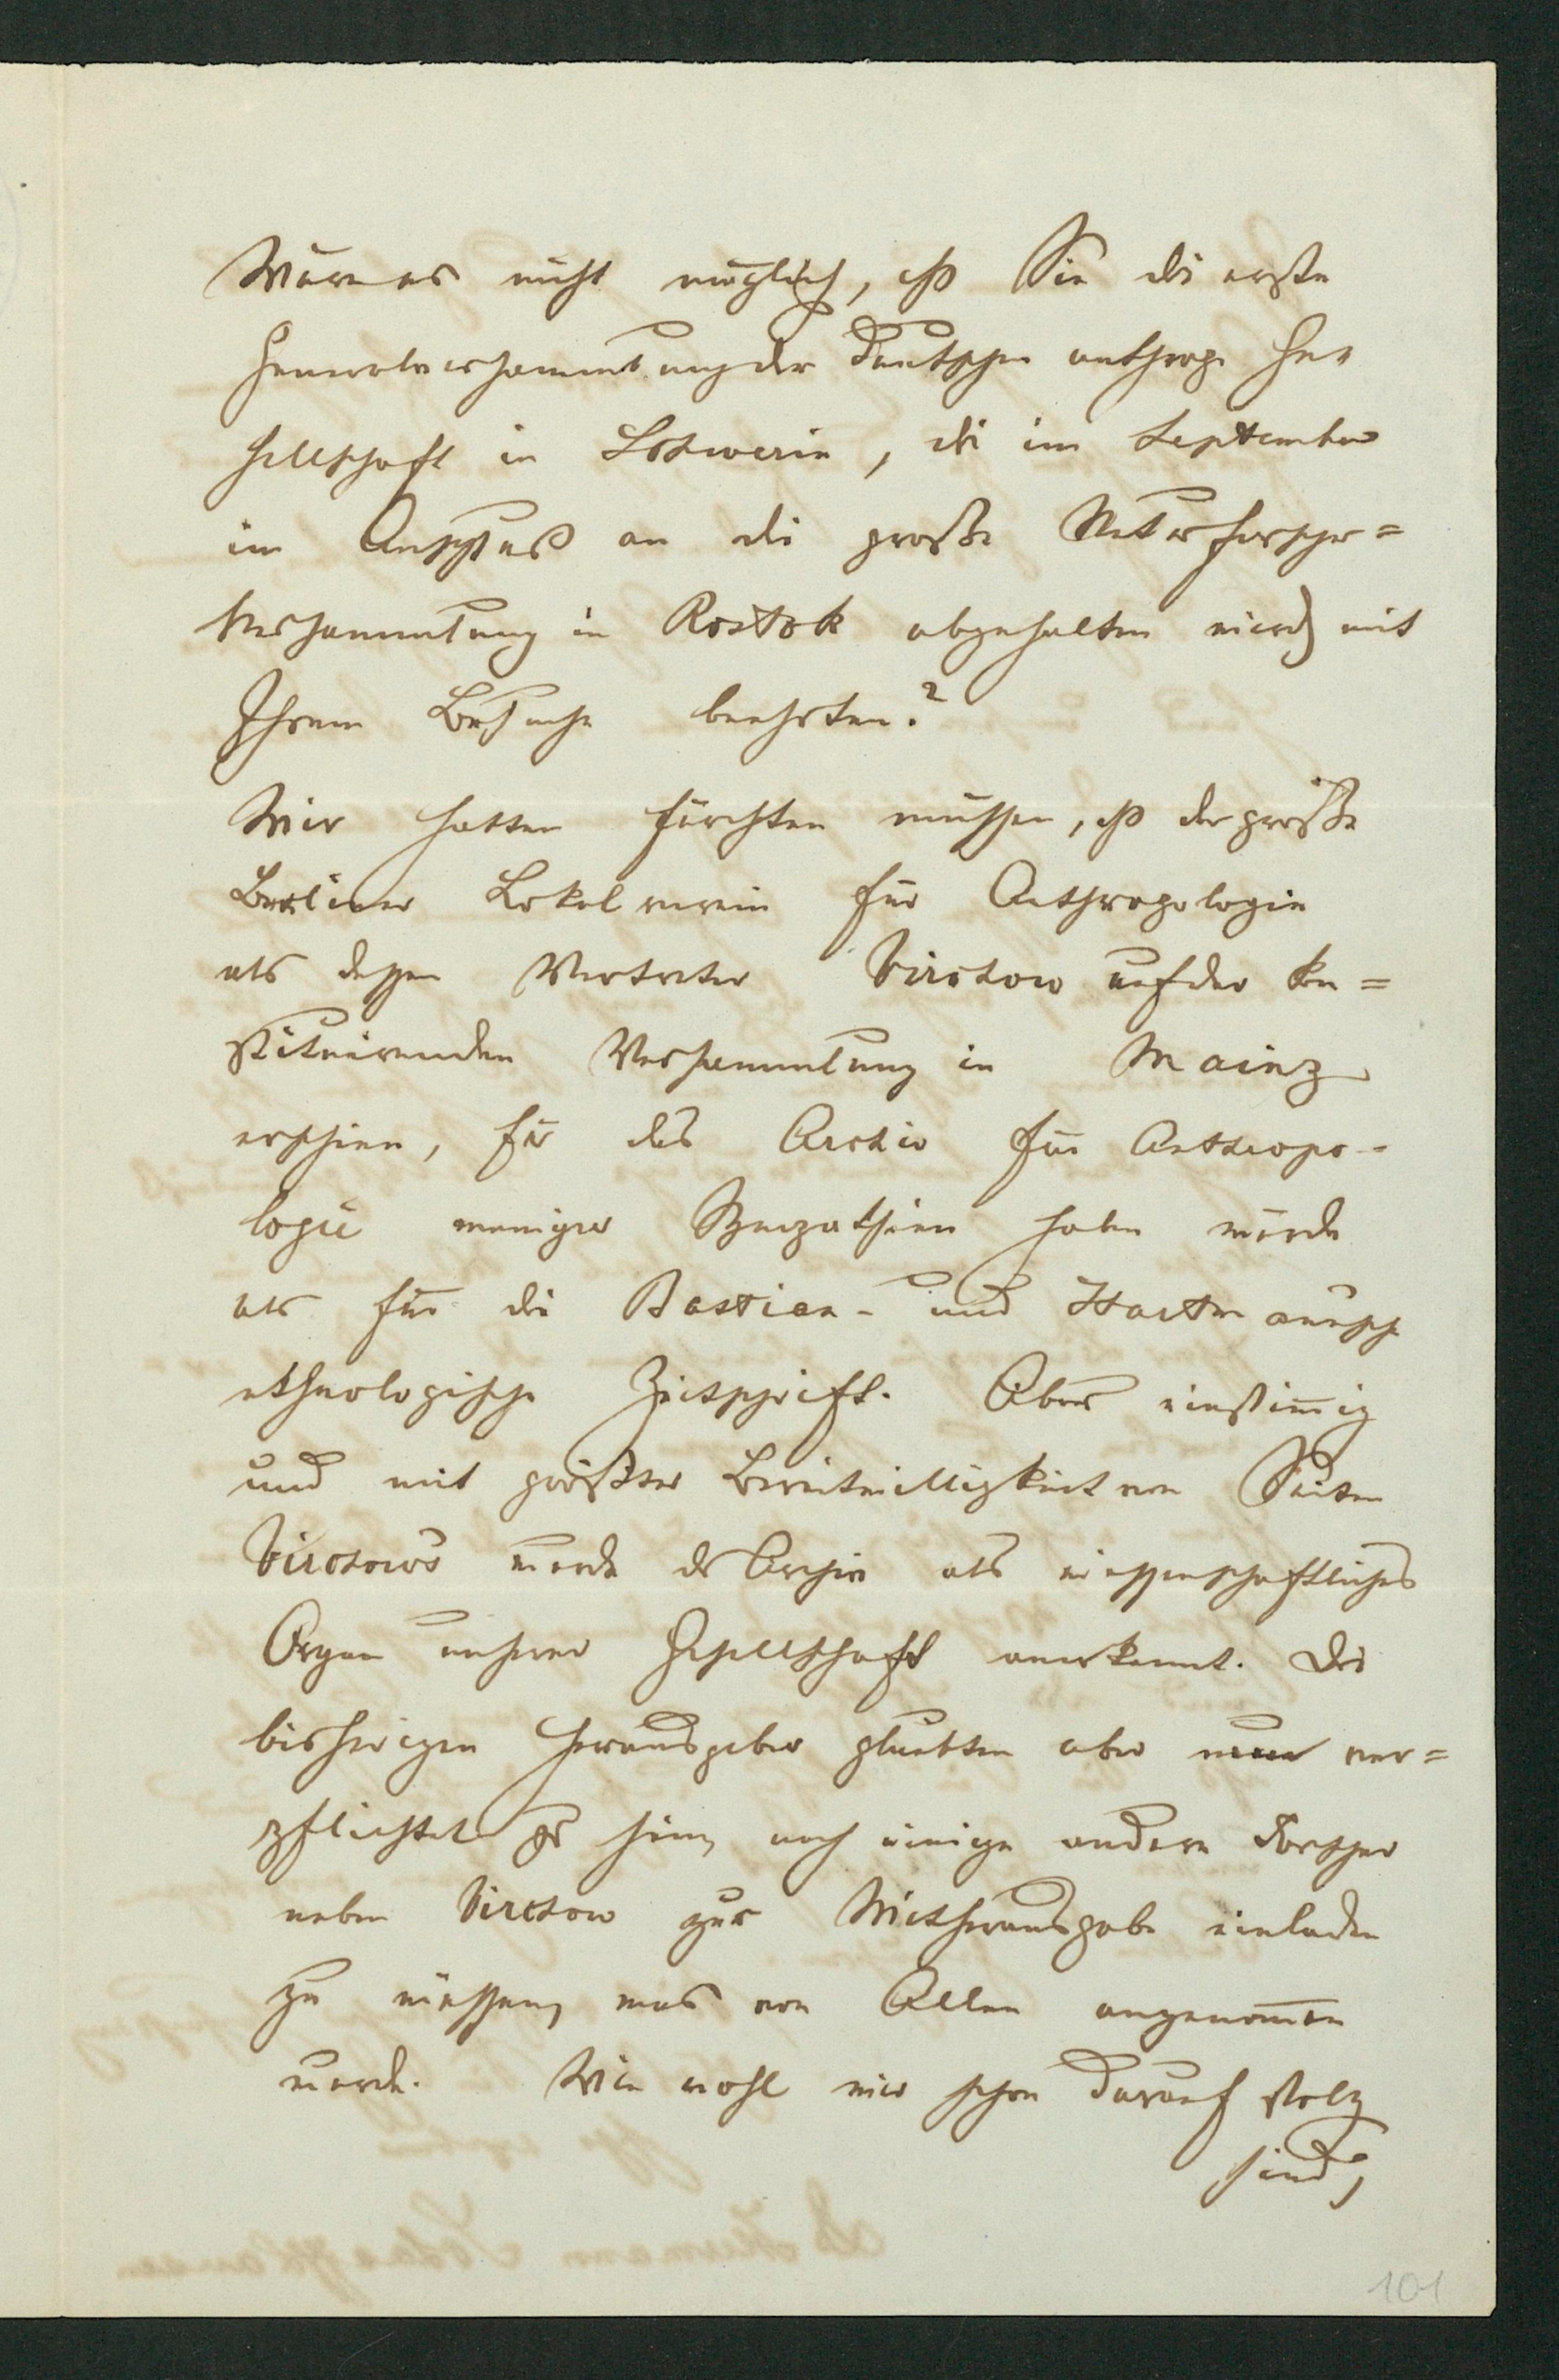 Wäre es nicht möglich, daß Sie die erste
Generalversammlung der Deutschen anthrop. Ge=
sellschaft in Schwerin, die im September
im Anschluß an die große Naturforscher=
Versammlung in Rostok abgehalten wird, mit
Ihrem Besuche beehrten?
Wir hatten fürchten müssen, daß der große
Berliner Lokalverein für Anthropologie
als dessen Vertreter Virchow auf der kon=
stituirenden Versammlung in Mainz
erschien, für das Archiv für Anthropo-
logie weniger Sympathien haben würde
als für die Bastian- und Hartmannsche
ethnologische Zeitschrift. Aber einstim̄ig
und mit größter Bereitwilligkeit von Seiten
Virchow's wurde das Archiv als wissenschaftliches
Organ unserer Gesellschaft anerkannt. Die
bisherigen Herausgeber glaubten aber ver=
pflichtet zu sein, noch einige andere Forscher
neben Virchow zur Mitherausgabe einladen
zu müssen, was von Allen angenom̄en
wurde. Wie wohl wir schon darauf stolz
sind,
101